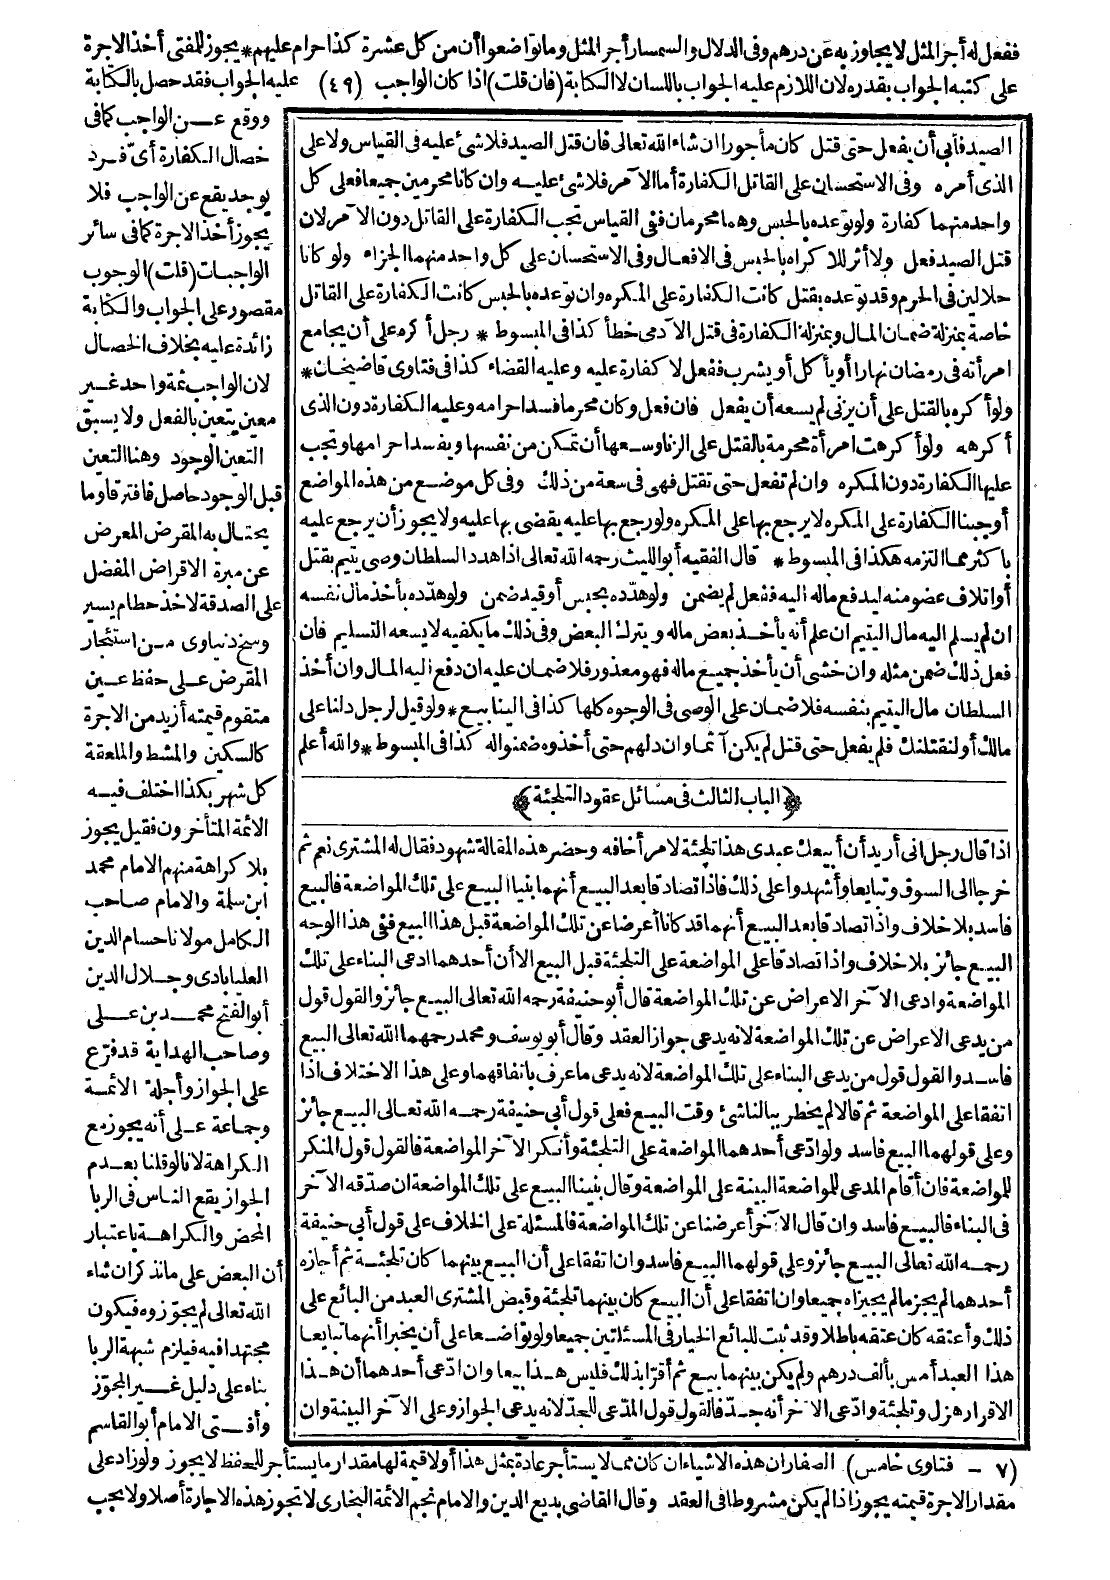 ففعل له أجر المثل لا يجاوز به عن درهم وفى الدلال والسمسار أجر المثل وما تواضعوا أن من كل عشرة كذا حرام عليهم * يجوز للمفتى أخذ الاجرة
على كتبه الجواب بقدره لان اللازم عليه الجواب باللسان لا الكتابة (فان قلت) اذا كان الواجب (٤٩) عليه الجواب فقد حصل بالكتابة
ووقع عن الواجب كما فى
خصال الكفارة أى فرد
يوجد يقع عن الواجب فلا
يجوز أخذ الاجرة كما فى سائر
الواجبات (قلت) الوجوب
مقصور على الجواب والكتابة
زائدة عليه بخلاف الخصال
لان الواجب ثمة واحد غير
معين يتعين بالفعل ولا يسبق
التعين الوجود وهنا التعين
قبل الوجود حاصل فافترقا وما
يحتال به المقرض المعرض
عن مبرة الاقراض المفضل
على الصدقة لاخذ حطام يسير
وسخ دنياوى من استئجار
المقرض على حفظ عين
متقوم قيمته أزيد من الاجرة
كالسكين والمشط والملعقة
كل شهر بكذا اختلف فيه
الائمة المتأخرون فقيل يجوز
بلا كراهة منهم الامام محمد
ابن سلمة والامام صاحب
الكامل مولانا حسام الدين
العليابادى وجلال الدين
أبو الفتح محمد بن على
وصاحب الهداية قد فرّع
على الجواز وأجلة الائمة
وجماعة على أنه يجوز مع
الكراهة لانا لو قلنا بعدم
الجواز يقع الناس فى الربا
المحض والكراهة باعتبار
أن البعض على ما نذكر ان شاء
الله تعالى لم يجوّزوه فيكون
مجتهدا فيه فيلزم شبهة الربا
بناء على دليل غير المجوّز
وأفتى الامام أبو القاسم
الصيد فأبى أن يفعل حتى قتل كان مأجورا ان شاء الله تعالى فان قتل الصيد فلا شئ عليه فى القياس ولا على
الذى أمره وفى الاستحسان على القاتل الكفارة أما الآمر فلا شئ عليه وان كانا محرمين جميعا فعلى كل
واحد منهما كفارة ولو توعده بالحبس وهما محرمان ففى القياس تجب الكفارة على القاتل دون الآمر لان
قتل الصيد فعل ولا أثر للاكراه بالحبس فى الافعال وفى الاستحسان على كل واحد منهما الجزاء ولو كانا
حلالين فى الحرم وقد توعده بقتل كانت الكفارة على المكره وان توعده بالحبس كانت الكفارة على القاتل
خاصة بمنزلة ضمان المال وبمنزلة الكفارة فى قتل الآدمى خطأ كذا فى المبسوط * رجل أكره على أن يجامع
امرأته فى رمضان نهارا أو يأكل أو يشرب ففعل لا كفارة عليه وعليه القضاء كذا فى فتاوى قاضيخان *
ولو أكره بالقتل على أن يزنى لم يسعه أن يفعل فان فعل وكان محرما فسد احرامه وعليه الكفارة دون الذى
أكرهه ولو أكرهت امرأة محرمة بالقتل على الزنا وسعها أن تمكن من نفسها ويفسد احرامها وتجب
عليها الكفارة دون المكره وان لم تفعل حتى تقتل فهى فى سعة من ذلك وفى كل موضع من هذه المواضع
أوجبنا الكفارة على المكره لا يرجع بها على المكره ولو رجع بها عليه يقضى بها عليه ولا يجوز أن يرجع عليه
بأكثر مما التزمه هكذا فى المبسوط * قال الفقيه أبو الليث رحمه الله تعالى اذا هدد السلطان وصى يتيم بقتل
أو اتلاف عضو منه ليدفع ماله اليه ففعل لم يضمن ولو هدّده بحبس أو قيد ضمن ولو هدّده بأخذ مال نفسه
ان لم يسلم اليه مال اليتيم ان علم أنه يأخذ بعض ماله ويترك البعض وفى ذلك ما يكفيه لا يسعه التسليم فان
فعل ذلك ضمن مثله وان خشى أن يأخذ جميع ماله فهو معذور فلا ضمان عليه ان دفع اليه المال وان أخذ
السلطان مال اليتيم بنفسه فلا ضمان على الوصى فى الوجوه كلها كذا فى الينابيع * ولو قيل لرجل دلنا على
مالك أو لنقتلنك فلم يفعل حتى قتل لم يكن آثما وان دلهم حتى أخذوه ضمنوا له كذا فى المبسوط * والله أعلم
﴿الباب الثالث فى مسائل عقود التلجئة﴾
اذا قال رجل انى أريد أن أبيعك عبدى هذا تلجئة لامر أخافه وحضر هذه المقالة شهود فقال له المشترى نعم ثم
خرجا الى السوق وتبايعا وأشهدوا على ذلك فاذا تصادقا بعد البيع أنهما بنيا البيع على تلك المواضعة فالبيع
فاسد بلا خلاف واذا تصادقا بعد البيع أنهما قد كانا أعرضا عن تلك المواضعة قبل هذا البيع ففى هذا الوجه
البيع جائز بلا خلاف واذا تصادقا على المواضعة على التلجئة قبل البيع الا أن أحدهما ادعى البناء على تلك
المواضعة وادعى الآخر الاعراض عن تلك المواضعة قال أبو حنيفة رحمه الله تعالى البيع جائز والقول قول
من يدعى الاعراض عن تلك المواضعة لانه يدعى جواز العقد وقال أبو يوسف ومحمد رحمهما الله تعالى البيع
فاسد والقول قول من يدعى البناء على تلك المواضعة لانه يدعى ما عرف باتفاقهما وعلى هذا الاختلاف اذا
اتفقا على المواضعة ثم قالا لم يخطر ببالنا شئ وقت البيع فعلى قول أبى حنيفة رحمه الله تعالى البيع جائز
وعلى قولهما البيع فاسد ولو ادّعى أحدهما المواضعة على التلجئة وأنكر الآخر المواضعة فالقول قول المنكر
للمواضعة فان أقام المدعى للمواضعة البينة على المواضعة وقال بنينا البيع على تلك المواضعة ان صدّقه الآخر
فى البناء فالبيع فاسد وان قال الآخر أعرضنا عن تلك المواضعة فالمسئلة على الخلاف على قول أبى حنيفة
رحمه الله تعالى البيع جائز وعلى قولهما البيع فاسد وان اتفقا على أن البيع بينهما كان تلجئة ثم أجازه
أحدهما لم يجز ما لم يجيزاه جميعا وان اتفقا على أن البيع كان بينهما تلجئة وقبض المشترى العبد من البائع على
ذلك وأعتقه كان عتقه باطلا وقد ثبت للبائع الخيار فى المسئلتين جميعا ولو تواضعا على أن يخبرا أنهما تبايعا
هذا العبد أمس بألف درهم ولم يكن بينهما بيع ثم أقرّا بذلك فليس هذا بيعا وان ادّعى أحدهما أن هذا
الاقرار هزل وتلجئة وادّعى الآخر أنه جدّ فالقول قول المدّعى للجدّ لانه يدعى الجواز وعلى الآخر البينة وان
(٧ - فتاوى خامس) الصفار ان هذه الاشياء ان كان مما لا يستأجر عادة بمثل هذا أو لا قيمة لها مقدار ما يستأجر للحفظ لا يجوز ولو زاد على
مقدار الاجرة قيمته يجوز اذا لم يكن مشروطا فى العقد وقال القاضى بديع الدين والامام نجم الائمة البخارى لا تجوز هذه الاجارة أصلا ولا يجب